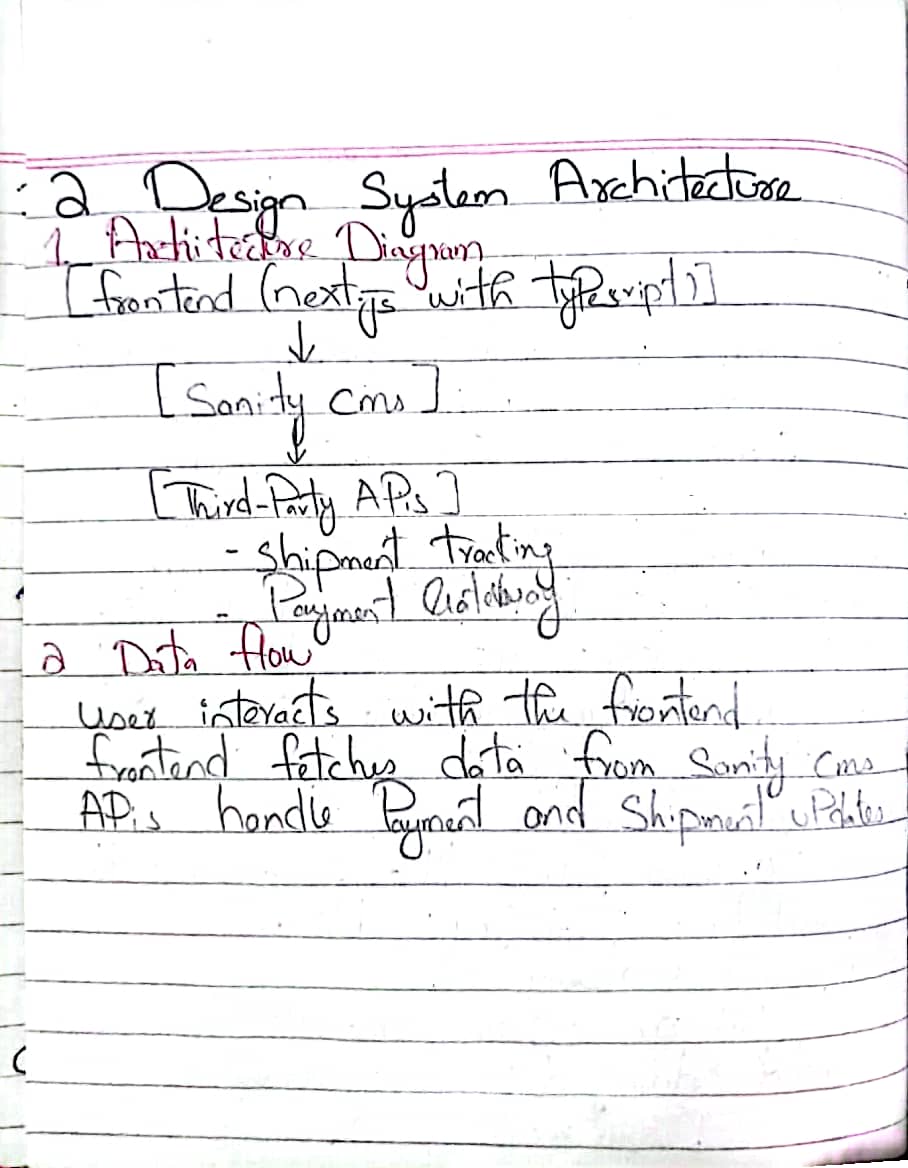 2 Design System Architecture
1. Architecture Diagram
[frontend (next js with typescript)]
↓
[Sanity cms]
↓
[Third-Party APis]
- Shipment tracking
- Payment Gateway
2 Data flow
user interacts with the frontend
frontend fetches data from Sanity cms
APis handle Payment and Shipment uPdates